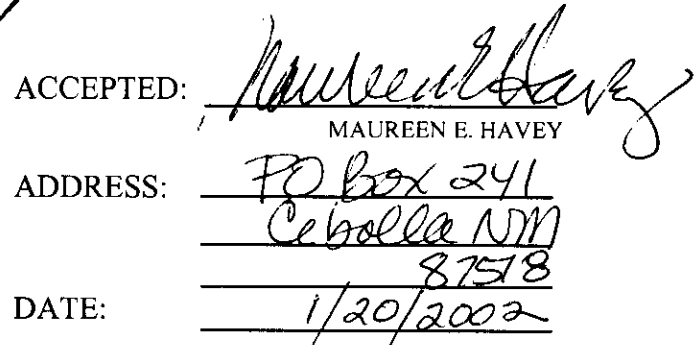 ACCEPTED: Maureen E Havey
MAUREEN E. HAVEY
ADDRESS: PO Box 241
Cebolla NM
87518
DATE: 1/20/2002